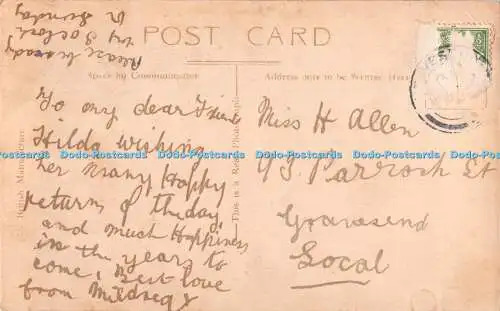 POST CARD
Please be ready
by 3 oclock
on Sunday
Space for Communication
Address only to be Written Here
British Manufacture
This is a Real Photograph
To my dear Friend
Hilda wishing
her many Happy
returns of the day
and much Happiness
in the years to
come, Best love
from Mildred x
Miss H Allen
Parrock St
Gravesend
Local
Dodo-Postcards Dodo-Postcards Dodo-Postcards Dodo-Postcards Dodo-Postcards